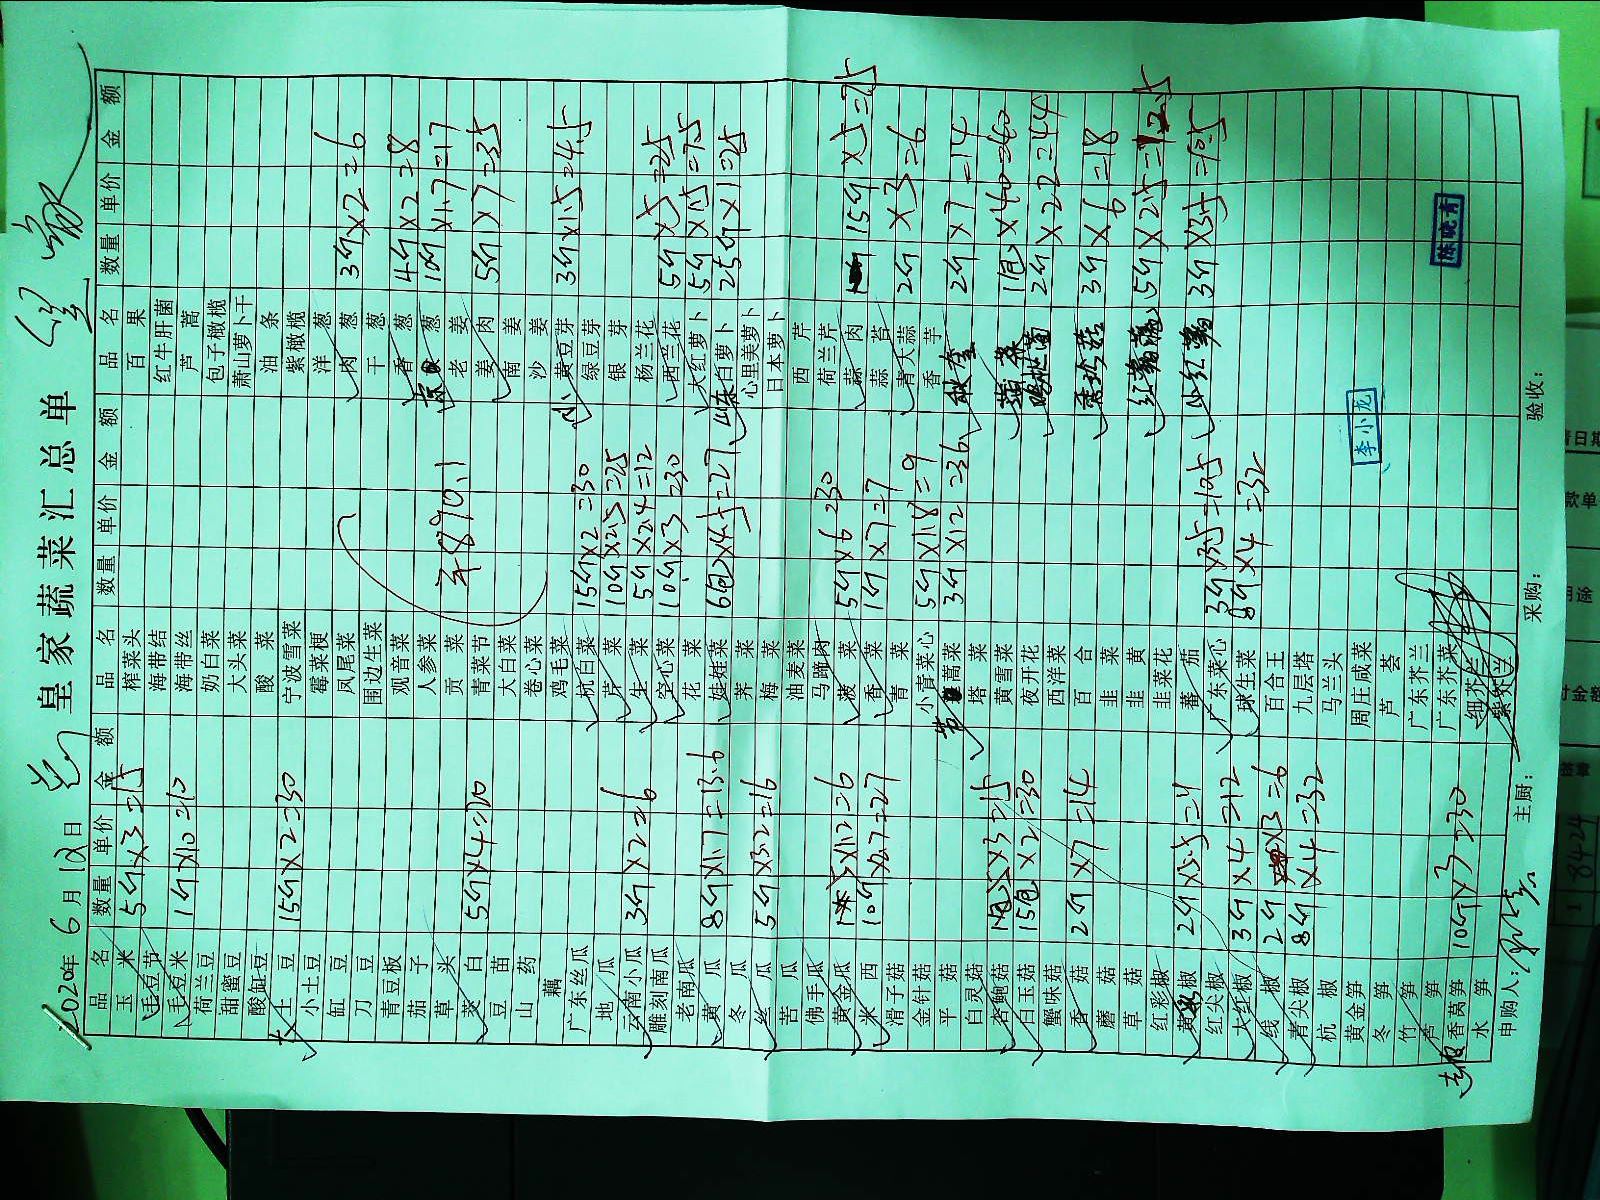 皇家蔬菜汇总单
2020年6月12日
品名 数量 单价 金额 品名 数量 单价 金额 品名 数量 单价 金额
玉米 5斤×3=15 榨菜头 百果
毛豆节 海带结 红牛肝菌
毛豆米 1斤×10=10 海带丝 芦蒿
荷兰豆 奶白菜 包子橄榄
甜蜜豆 大头菜 萧山萝卜干
酸缸豆 酸菜 油条
土豆 15斤×2=30 宁波雪菜 紫橄榄
小土豆 霉菜梗 洋葱
缸豆 凤尾菜 肉葱 3斤×2=6
刀豆 围边生菜 干葱
青豆板 观音菜 香葱 4斤×2=8
茄子 人参菜 葱 10斤×1.7=17
草头 贡菜 ¥890.1 老姜
茭白 5斤×4=20 青菜节 姜肉 5斤×7=35
豆苗 大白菜 南姜
山药 卷心菜 沙姜
藕 鸡毛菜 黄豆芽 3斤×1.5=4.5
广东丝瓜 杭白菜 15斤×2=30 绿豆芽
地瓜 芹菜 10斤×2.5=25 银芽
云南小瓜 3斤×2=6 生菜 5斤×2.4=12 杨兰花
雕刻南瓜 空心菜 10斤×3=30 西兰花 5斤×5=25
老南瓜 花菜 大红萝卜 5斤×1.5=7.5
黄瓜 8斤×1.7=13.6 娃娃菜 6包×4.5=27 白萝卜 25斤×1=25
冬瓜 荠菜 心里美萝卜
丝瓜 5斤×3.2=16 梅菜 日本萝卜
苦瓜 油麦菜 西芹
佛手瓜 马蹄肉 荷兰芹
黄金瓜 5×1.2=6 菠菜 5斤×6=30 蒜肉 15斤×5=75
米西 10斤×2.7=27 香菜 1斤×7=7 蒜苔
滑子菇 青菜 青大蒜 2斤×3=6
金针菇 小青菜心 5斤×1.8=9 香芋
平菇 蒿菜 3斤×12=36 秋葵 2斤×7=14
白灵菇 塔菜
杏鲍菇 ×3=15 黄雪菜 1包×40=40
白玉菇 15包×2=30 夜开花 2斤×22=44
蟹味菇 西洋菜
香菇 2斤×7=14 百合 秀珍菇 3斤×6=18
蘑菇 韭菜
草菇 韭黄 红 5斤×2.5=12.5
红彩椒 韭菜花
黄椒 2斤×3.5=7 蕃茄 小红 3斤×3.5=10.5
红尖椒 广东菜心 3斤×3.5=10.5
大红椒 3斤×4=12 球生菜 8斤×4=32
线椒 2斤×3=6 百合王
青尖椒 8斤×4=32 九层塔
杭椒 马兰头
黄金笋 周庄咸菜
冬笋 芦荟
竹笋 广东芥兰
芦笋 广东芥菜
香莴笋 10斤×3=30 细芥兰
水笋 紫芥兰
李小龙
陈晓青
申购人： 主厨： 采购： 验收：